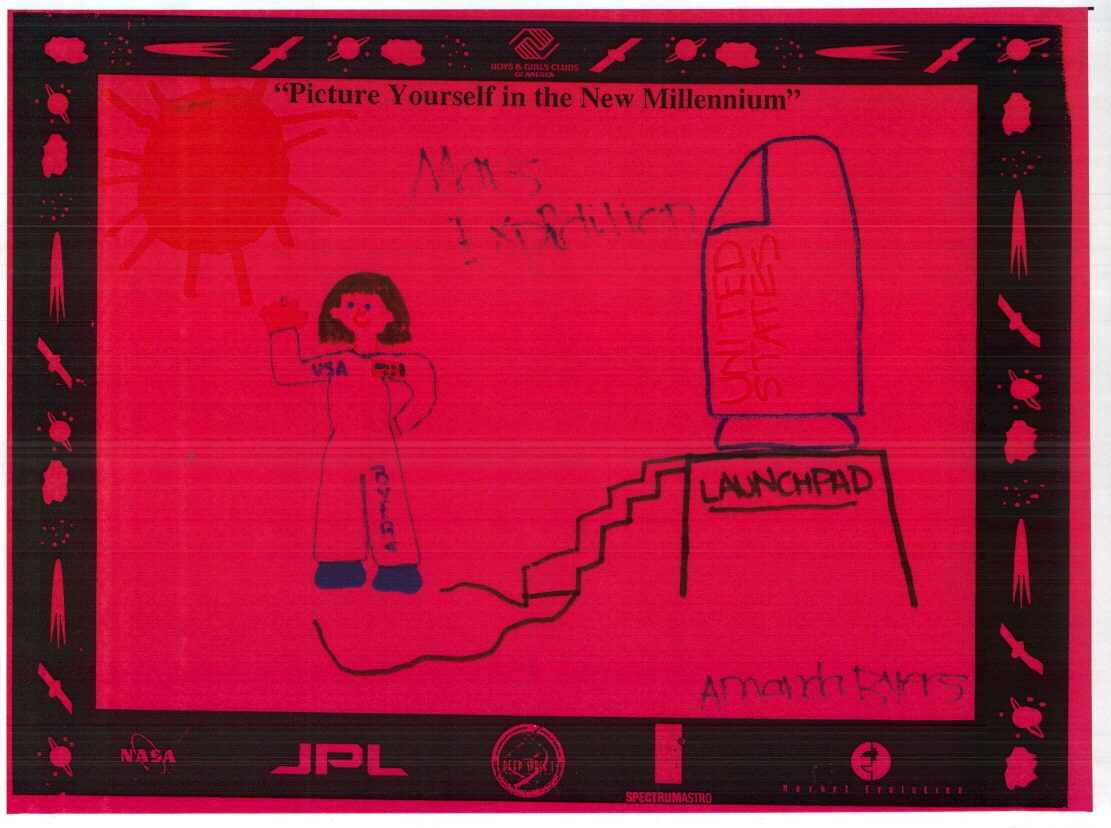 BOYS & GIRLS CLUBS
OF AMERICA
“Picture Yourself in the New Millennium”
Mars
Expedition
UNITED
STATES
USA
LAUNCHPAD
Amanda Byers
NASA
JPL
DEEP SPACE 1
SPECTRUMASTRO
Market Evolution